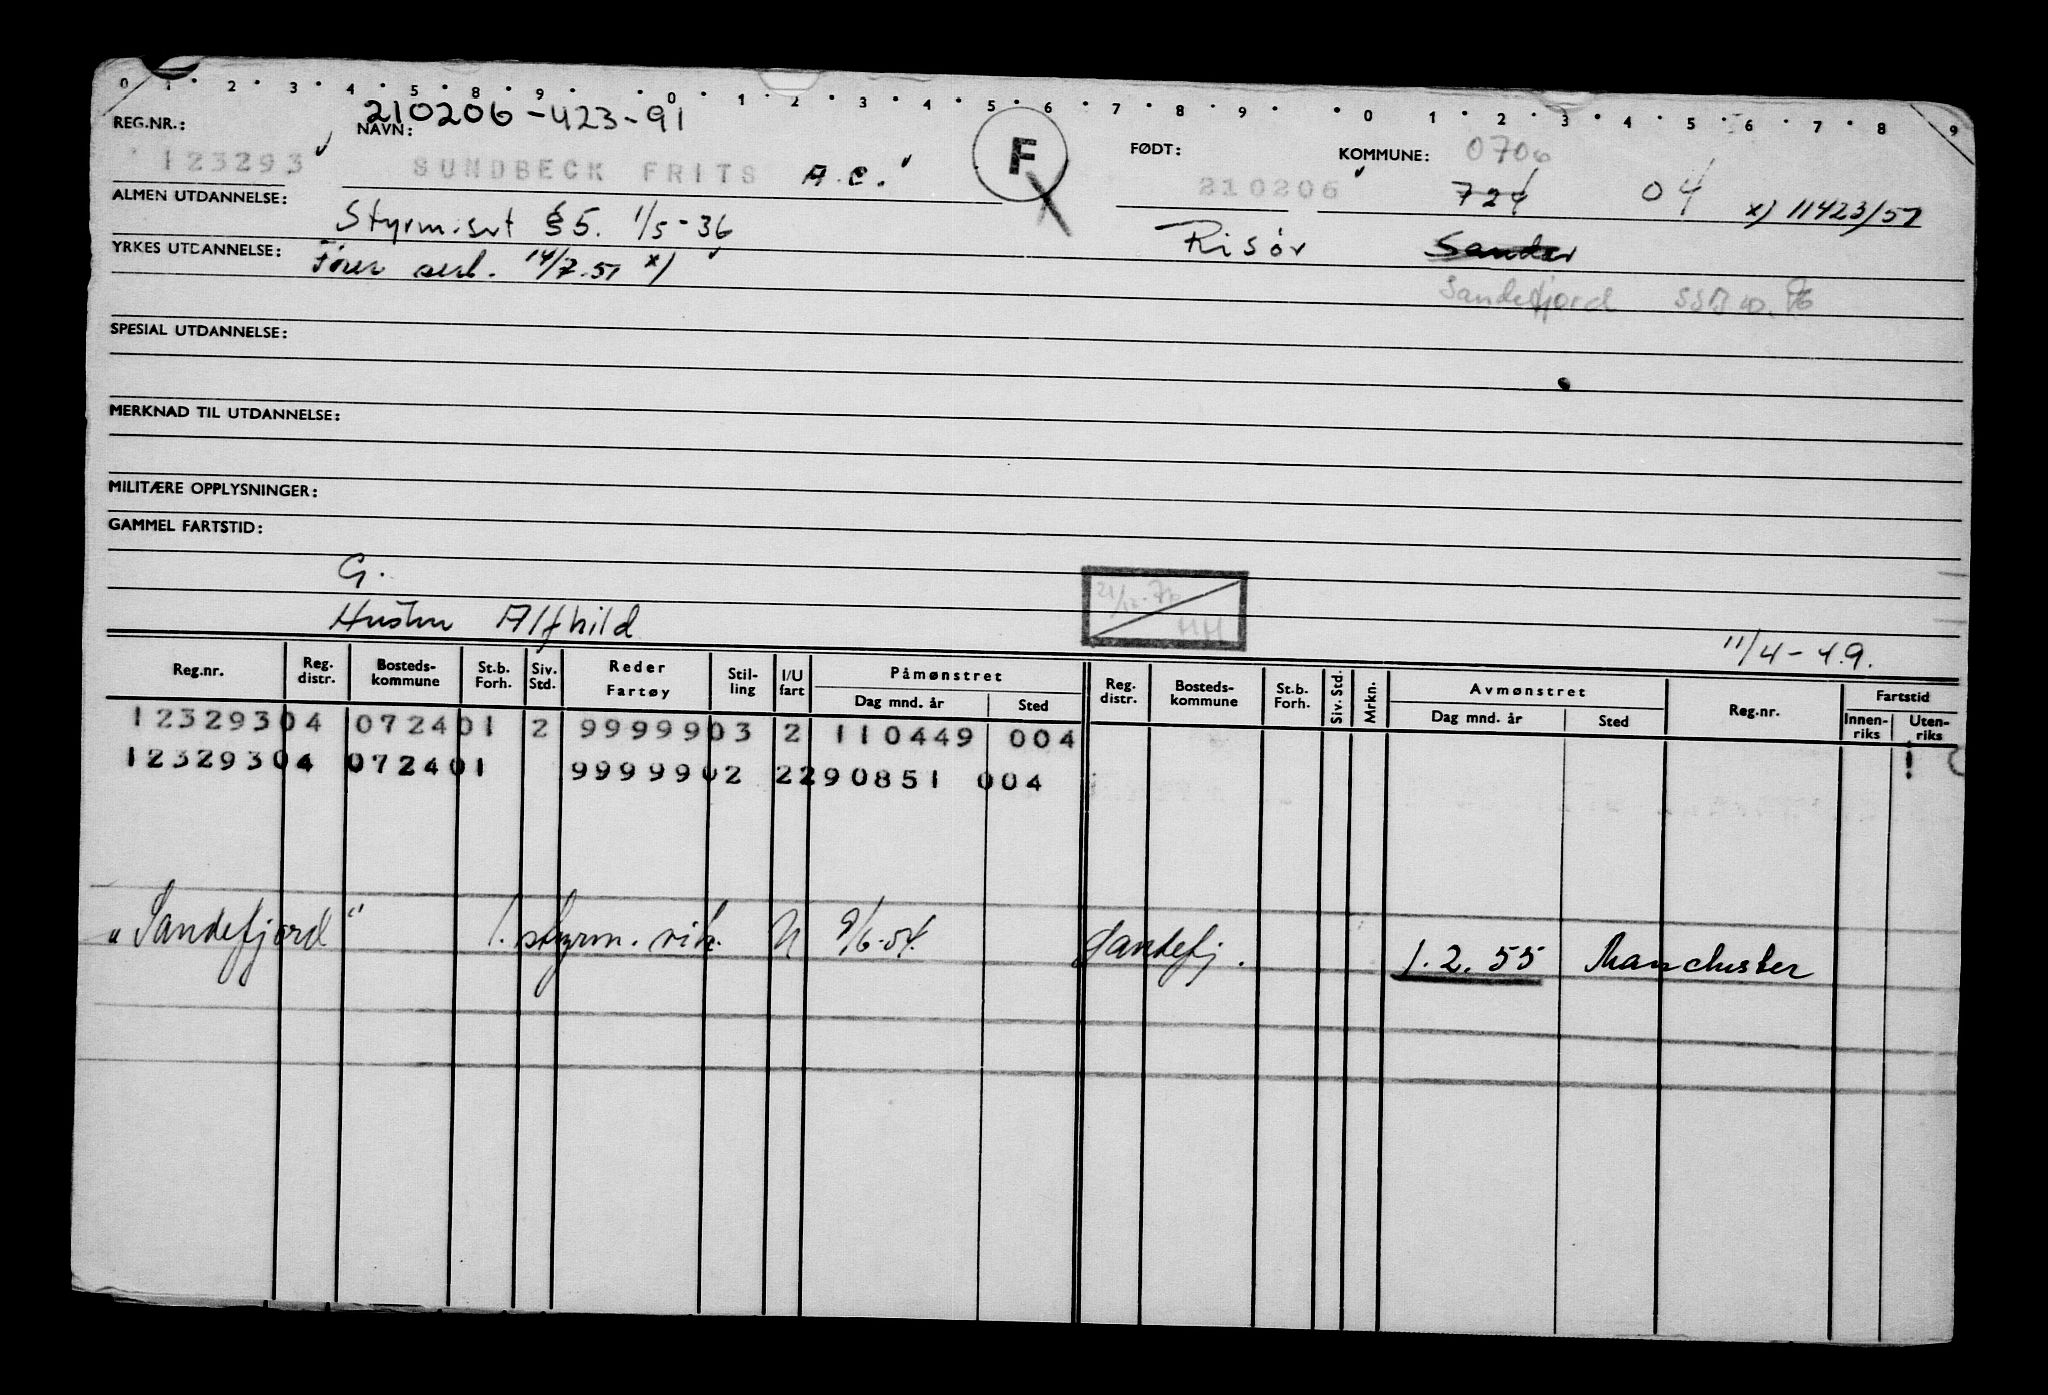 0 1 2 3 4 5 8 9 0 1 2 3 4 5 6 7 8 9 0 1 2 3 4 5 6 7 8 9
210206-423-91
REG.NR.: NAVN: F FØDT: KOMMUNE: 0706
123293 SUNDBECK FRITS A.C. 210206 724 04 x) 11423/51
ALMEN UTDANNELSE: Styrm.sert §5. 1/5-36 Risør Sandar
YRKES UTDANNELSE: Fører sert. 14/7.51 x)
Sandefjord
SPESIAL UTDANNELSE:
MERKNAD TIL UTDANNELSE:
MILITÆRE OPPLYSNINGER:
GAMMEL FARTSTID:
G.
Hustru Alfhild
11/4-49.
Reg.nr. Reg. distr. Bosteds-kommune St.b. Forh. Siv. Std. Reder Fartøy Stil-ling I/U fart Påmønstret Dag mnd. år Sted Reg. distr. Bosteds-kommune St.b. Forh. Siv. Std. Mrkn. Avmønstret Dag mnd. år Sted Reg.nr. Fartstid Innen-riks Uten-riks
12329304 072401 2 9999903 2 110449 004
12329304 072401 9999902 2290851 004
"Sandefjord" 1. styrm. vik. U 9/6-54. Sandefj. 1.2.55 Manchester